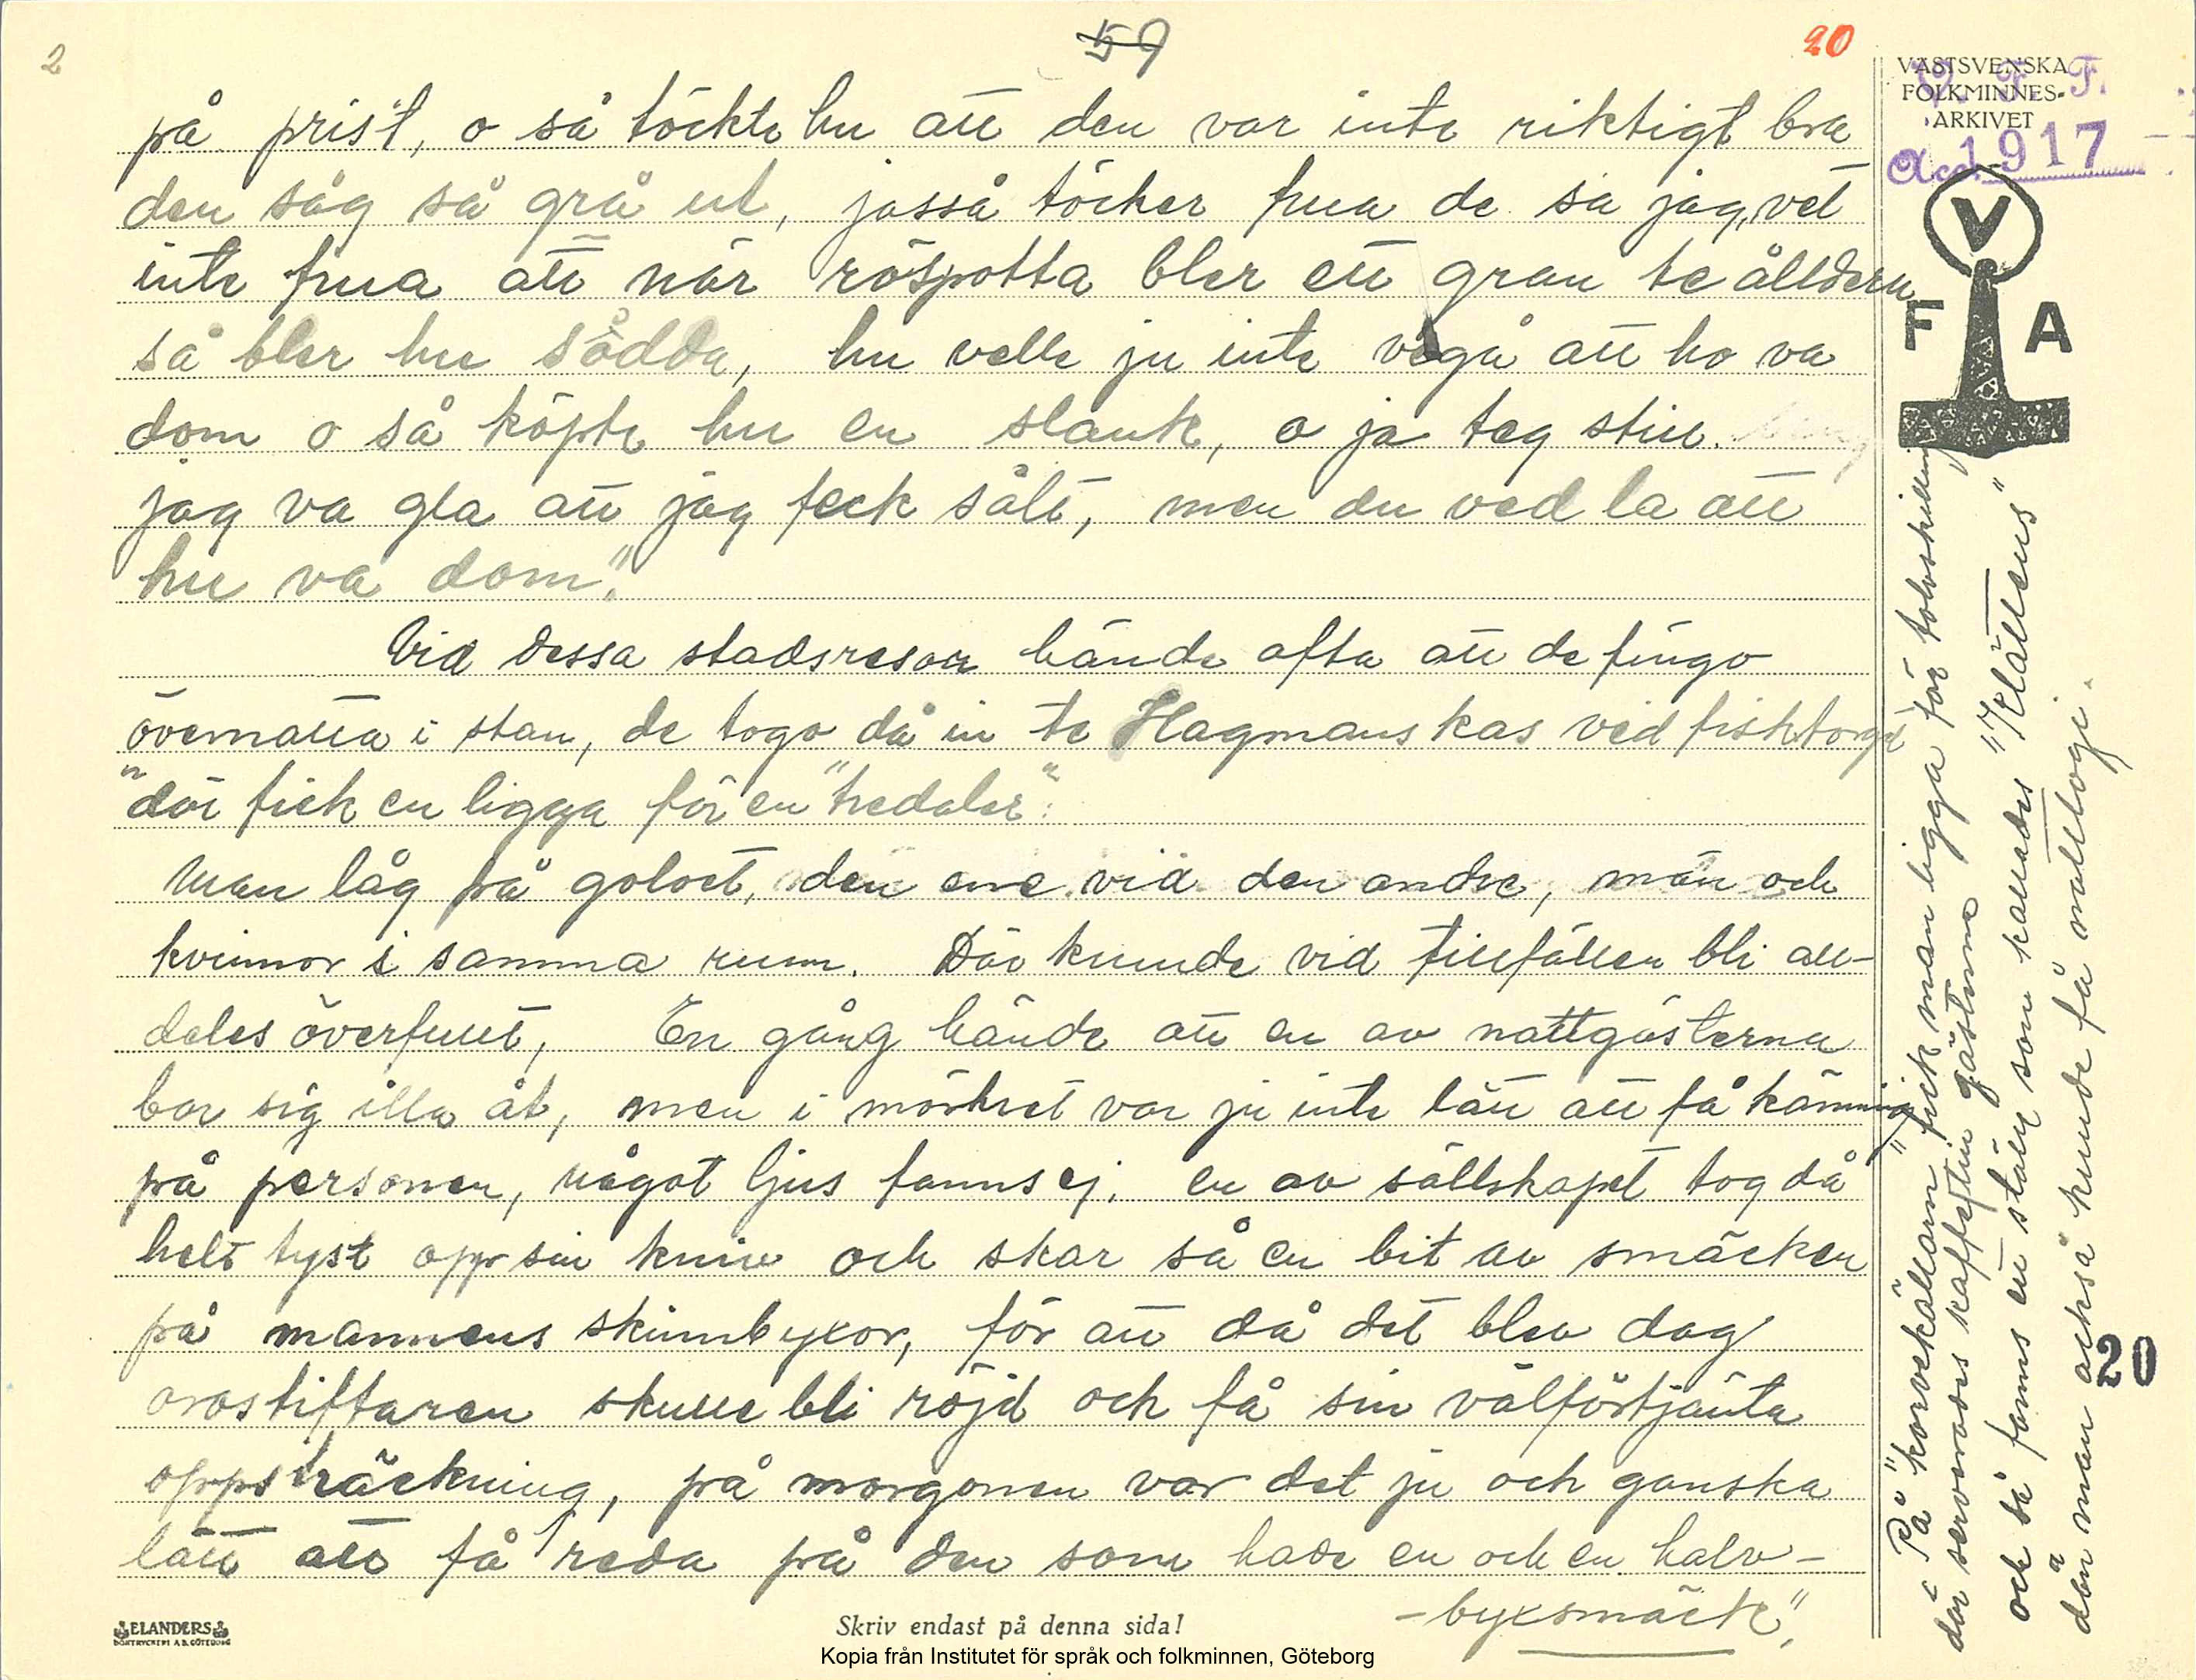 2
59
20
VÄSTSVENSKA
FOLKMINNES-
ARKIVET
V. F. F.
Acc. 1917
V
F A
på pris't, o så töckte hu att den var inte riktigt bra
den såg så grå ut, jasså töcker frua de sa jag, vet
inte frua att när röspotta bler ett gran te ålldern
så bler hu sådda, hu velle ju inte vėgå att ho va
dom o så köpte hu en slank, o ja teg still.
jag va gla att jag feck sålt, men du ved la att
hu va dom".
Vid dessa stadsresor hände ofta att de fingo
övernatta i stan, de togo då in te Hagmanskas vid fisktorget
"där fick en ligga för en "tredaler".
Man låg på golvet, den ene vid den andre, män och
kvinnor i samma rum. Där kunde vid tillfällen bli all-
deles överfullt, En gång hände att en av nattgästerna
bar sig illa åt, men i mörkret var ju inte lätt att få känning
på personen, något ljus fanns ej. en av sällskapet tog då
helt tyst opp sin kniv och skar så en bit av smäcken
på mannens skinnbyxor, för att då det blev dag
orostiftaren skulle bli röjd och få sin välförtjänta
oppsträckning, på morgonen var det ju och ganska
lätt att få reda på den som hade en och en halv-
-byxsmäck".
På "korvekällarn" fick man ligga för tolvskilling
där serverades kaffe gästerna
och så fanns ett ställe som kallades "Klättens"
där man också kunde få nattlogi.
20
ELANDERS
BOKTRYCKERI A.B. GÖTEBORG
Skriv endast på denna sida!
Kopia från Institutet för språk och folkminnen, Göteborg